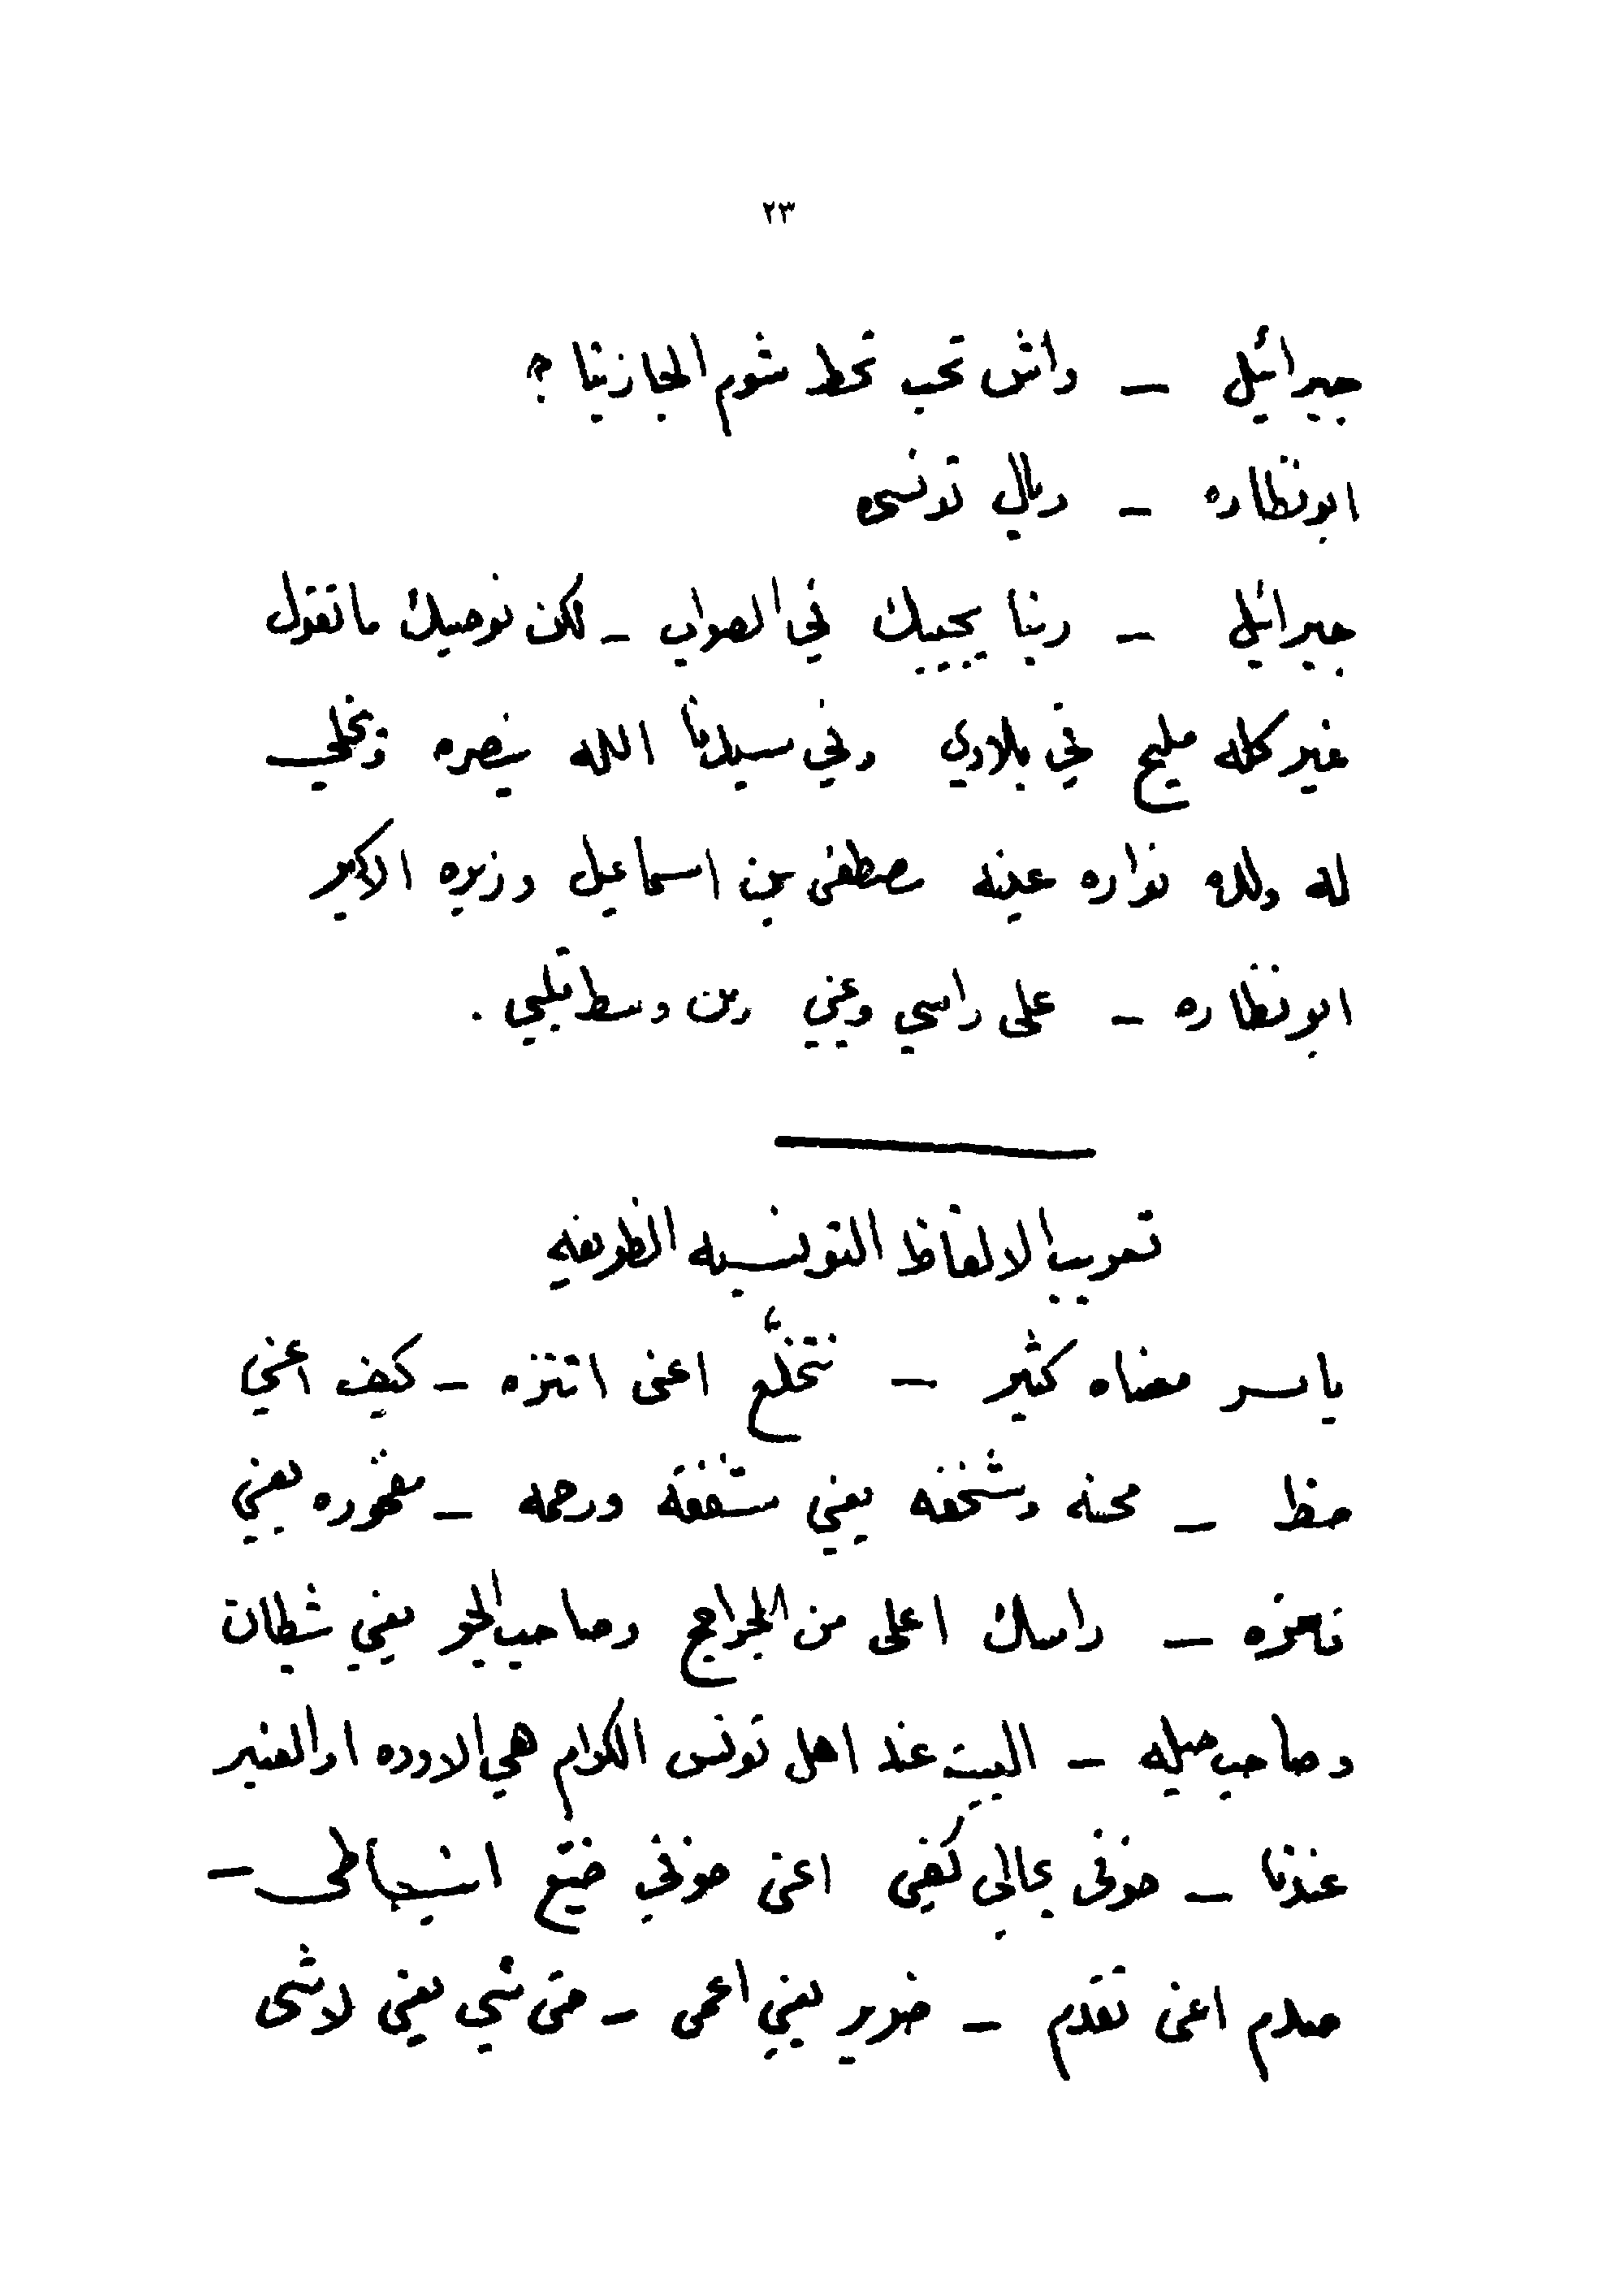 ٢٣
جبرائيل — واش تحب تحط شوم الجازيتا ؟
ابونظاره — ريال تونسى
جبرائيل — ربنا يحييك في الصواب — لكن نوصيك ما تقول
غير كله مليح في بلادي وفي سيدنا الله ينصره ويخلي
له ولدل نواره عينه مصطفى بن اسماعيل وزيره الاكبر
ابونظاره — على راسي وعيني ومن وسط قلبي .
تعريب الالفاظ التونسيه الظريفه
ياسر معناه كثير — نتخلّع اعنى اتنزه — كيف اعني
حظ — محنه وشخفه يعني شفقة ورحمه — مغموره يعني
نهزه — راسك اعلى من الجراح وصاحب الجو يعني شيطان
وصاحب حيله — البيت عند اهل تونس الكرام هي الاوده او العنبر
عندنا — خوفى بحالي كفي اعنى خوفي ضيّع انبساطى —
صدم اعنى تقدم — ضرير يعني اعمى — حتى شي يعني لاشى